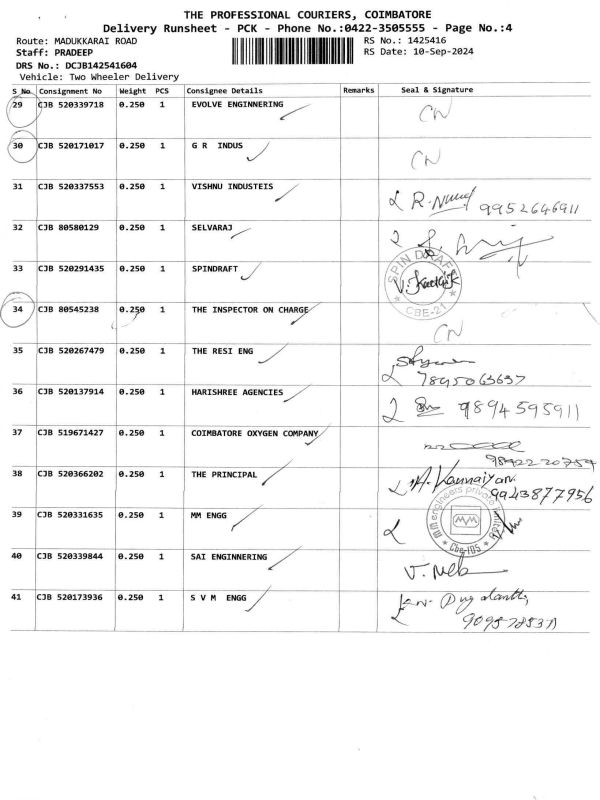 THE PROFESSIONAL COURIERS, COIMBATORE
Delivery Runsheet - PCK - Phone No.:0422-3505555 - Page No.:4
Route: MADUKKARAI ROAD RS No.: 1425416
Staff: PRADEEP RS Date: 10-Sep-2024
DRS No.: DCJB142541604
Vehicle: Two Wheeler Delivery
S No. Consignment No Weight PCS Consignee Details Remarks Seal & Signature
29 CJB 520339718 0.250 1 EVOLVE ENGINNERING CN
30 CJB 520171017 0.250 1 G R INDUS CN
31 CJB 520337553 0.250 1 VISHNU INDUSTEIS 9952646911
32 CJB 80580129 0.250 1 SELVARAJ
33 CJB 520291435 0.250 1 SPINDRAFT SPIN DRAFT V. Karthik CBE-21
34 CJB 80545238 0.250 1 THE INSPECTOR ON CHARGE CN
35 CJB 520267479 0.250 1 THE RESI ENG 7845063637
36 CJB 520137914 0.250 1 HARISHREE AGENCIES 9894595911
37 CJB 519671427 0.250 1 COIMBATORE OXYGEN COMPANY
38 CJB 520366202 0.250 1 THE PRINCIPAL A. Kannaiyan 9943877956
39 CJB 520331635 0.250 1 MM ENGG MM engineers private limited MM Cbe-105
40 CJB 520339844 0.250 1 SAI ENGINNERING
41 CJB 520173936 0.250 1 S V M ENGG